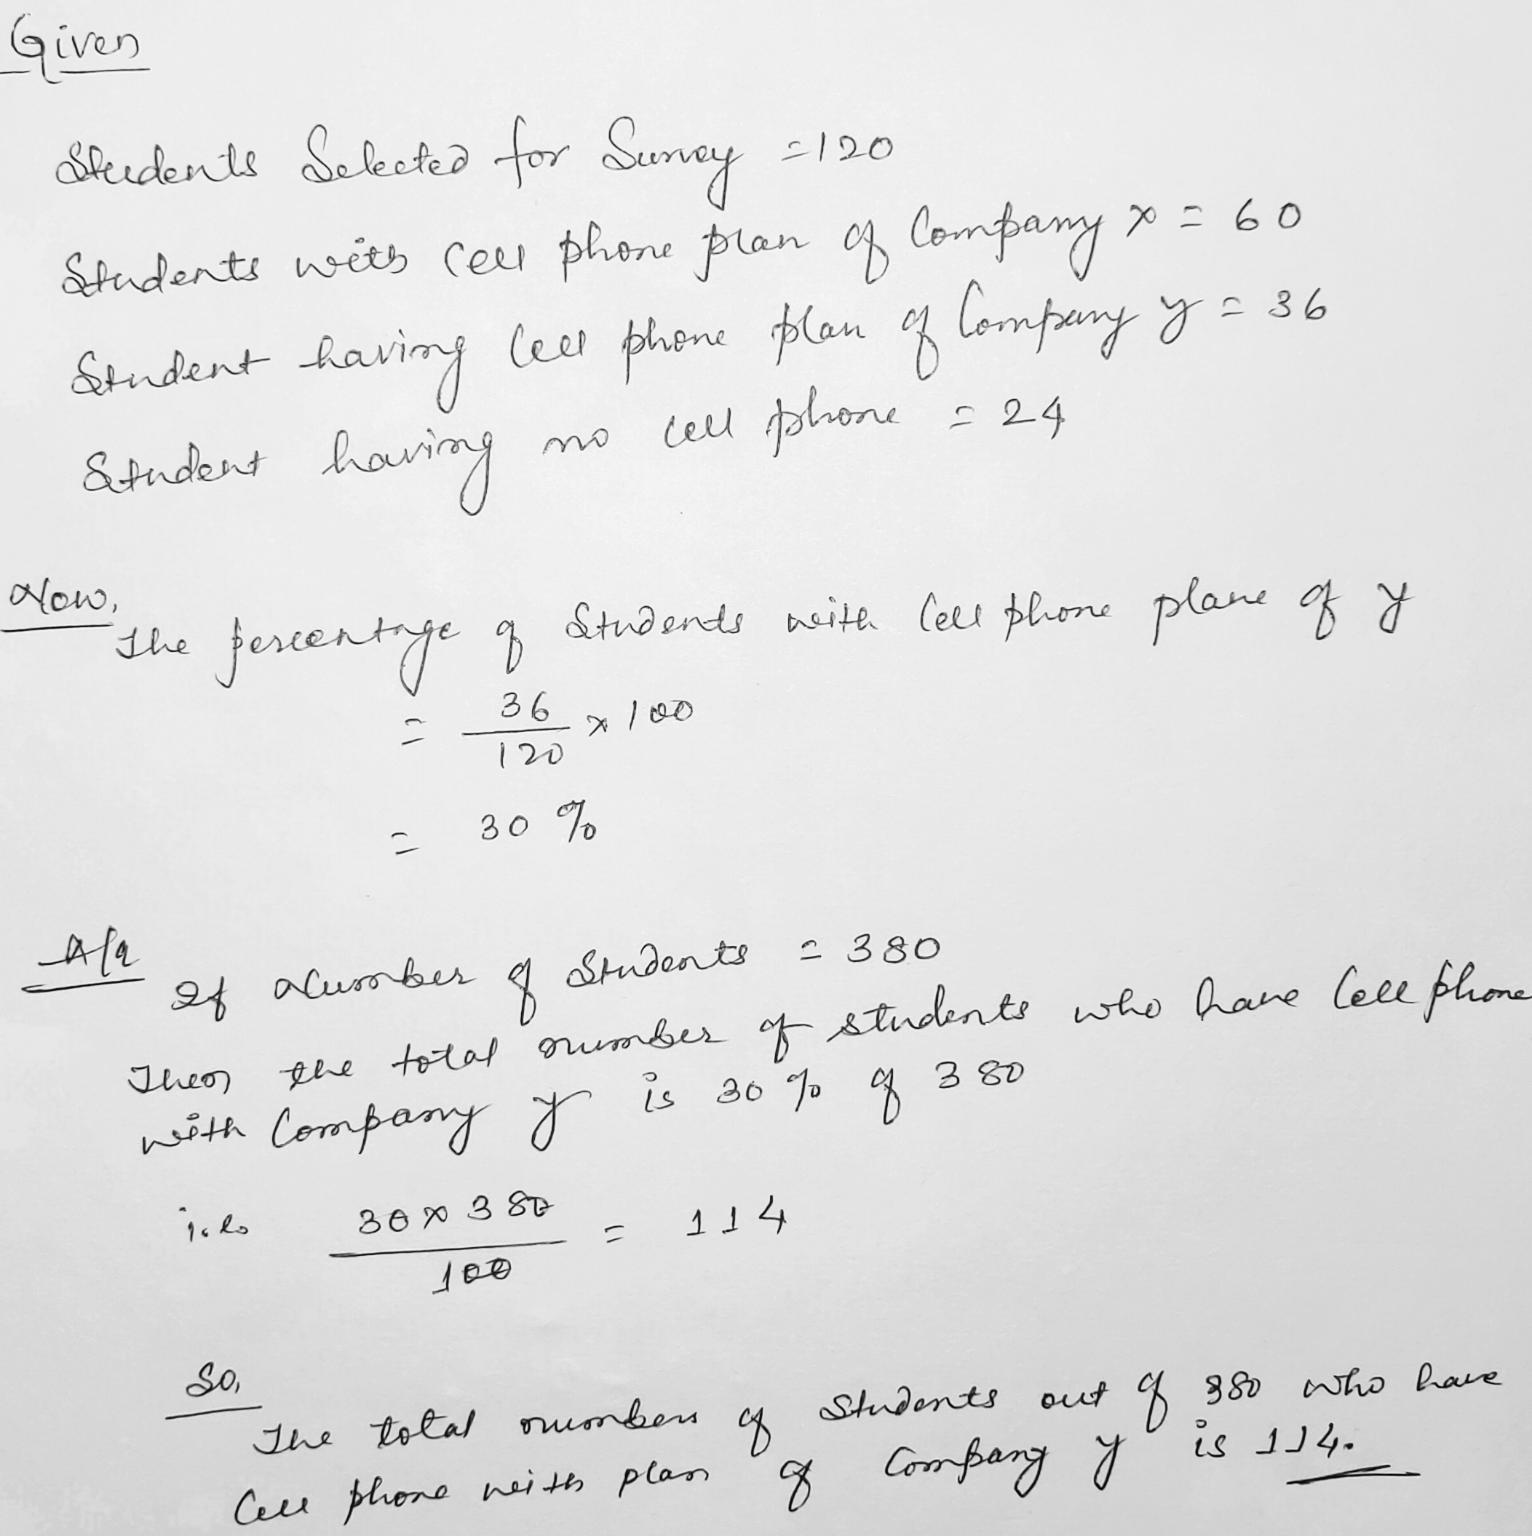 Given
Students Selected for Survey = 120
Students with cell phone plan of Company x = 60
Student having cell phone plan of Company y = 36
Student having no cell phone = 24
Now,
The percentage of Students with cell phone plane of y
= 36/120 × 100
= 30 %
A/q
If Number of Students = 380
Then the total number of students who have cell phone
with Company y is 30 % of 380
i.e. 30 × 380 / 100 = 114
So,
The total numbers of Students out of 380 who have
Cell phone with plan of Company y is 114.